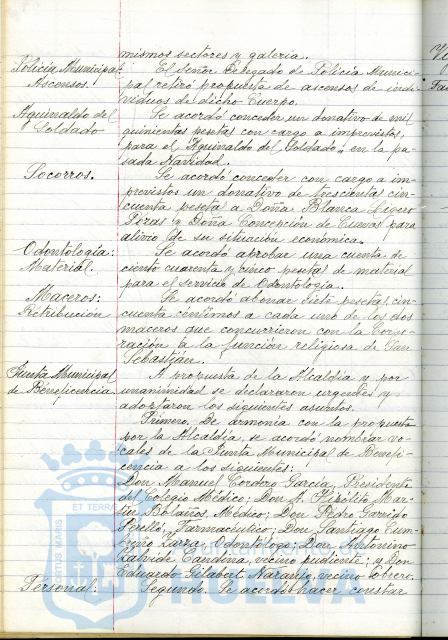 mismos sectores y galería.
Policía Municipal: El Señor Delegado de Policía Munici-
Ascensos. pal retiró propuesta de ascensos de indi-
viduos de dicho Cuerpo.
Aguinaldo del Se acordó conceder un donativo de mil
Soldado quinientas pesetas con cargo a imprevistos,
para el "Aguinaldo del Soldado" en la pa-
sada Navidad.
Socorros. Se acordó conceder con cargo a im-
previstos un donativo de trescientas cin-
cuenta pesetas a Doña Blanca
y Doña Concepción de Cuevas para
alivio de su situación económica.
Odontología: Se acordó aprobar una cuenta de
Material. ciento cuarenta y cinco pesetas de material
para el servicio de Odontología.
Maceros: Se acordó abonar siete pesetas cin-
Retribución cuenta céntimos a cada uno de los dos
maceros que concurrieron con la Corpo-
ración a la función religiosa de San
Sebastián.
Junta Municipal A propuesta de la Alcaldía y por
de Beneficencia unanimidad se declararon urgentes y
adoptaron los siguientes asuntos.
Primero. De armonía con la propuesta
por la Alcaldía, se acordó nombrar vo-
cales de la Junta Municipal de Benefi-
cencia a los siguientes:
Don Manuel Cordero García, Presidente
del Colegio Médico; Don A. Mar-
tín Bolaños, Médico; Don Pedro Garrido
Perelló, Farmacéutico; Don Santiago Cum-
Odontólogo; Don Antonino
vecino pudiente; y Don
Eduardo Gilabert Naranjo, vecino obrero.
Personal: Segundo. Se acordó hacer constar
Ayuntamiento de
HUELVA